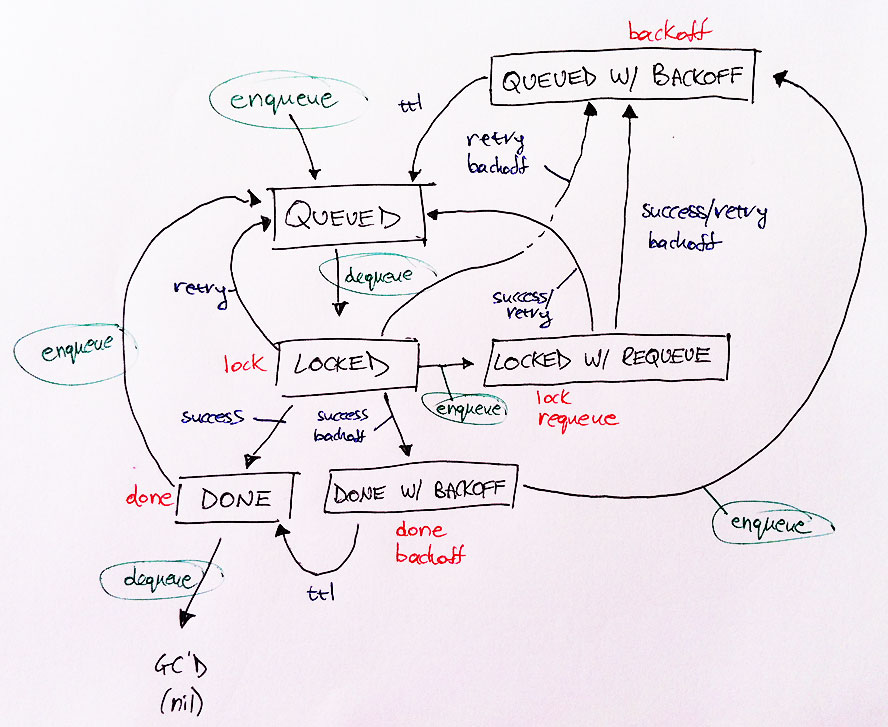 backoff
QUEUED W/ BACKOFF
enqueue
ttl
retry
backoff
QUEUED
success/retry
backoff
dequeue
retry
success/
retry
enqueue
lock
LOCKED
LOCKED W/ REQUEUE
enqueue
lock
requeue
success
success
backoff
done
DONE
DONE W/ BACKOFF
enqueue
done
backoff
dequeue
ttl
GC'D
(nil)